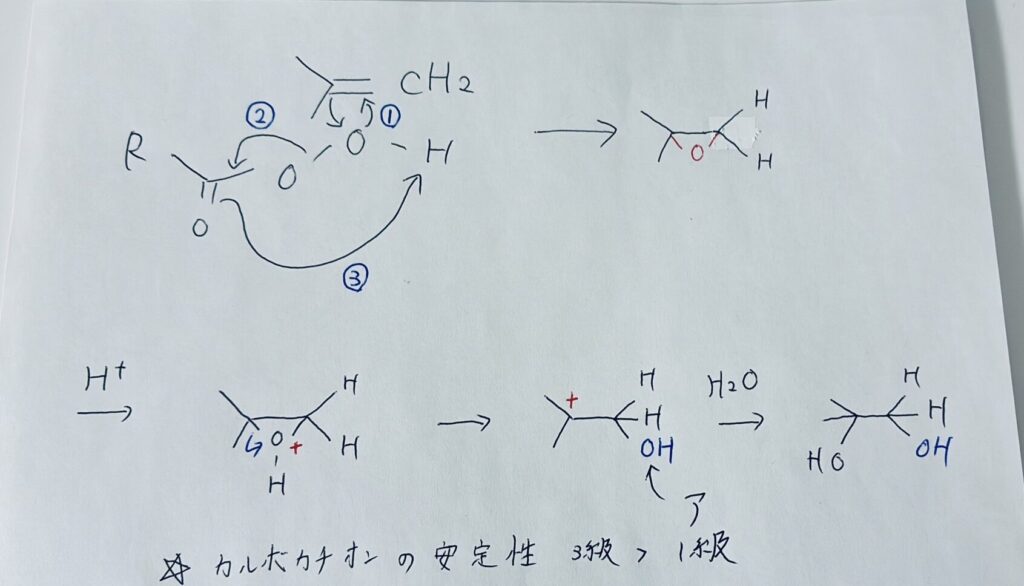 CH2
② ①
R O O H
O
③
H
O
H
H+
H
O +
H
H
+
H
H
OH
H2O
H
H
HO OH
ア
☆ カルボカチオンの安定性 3級 > 1級